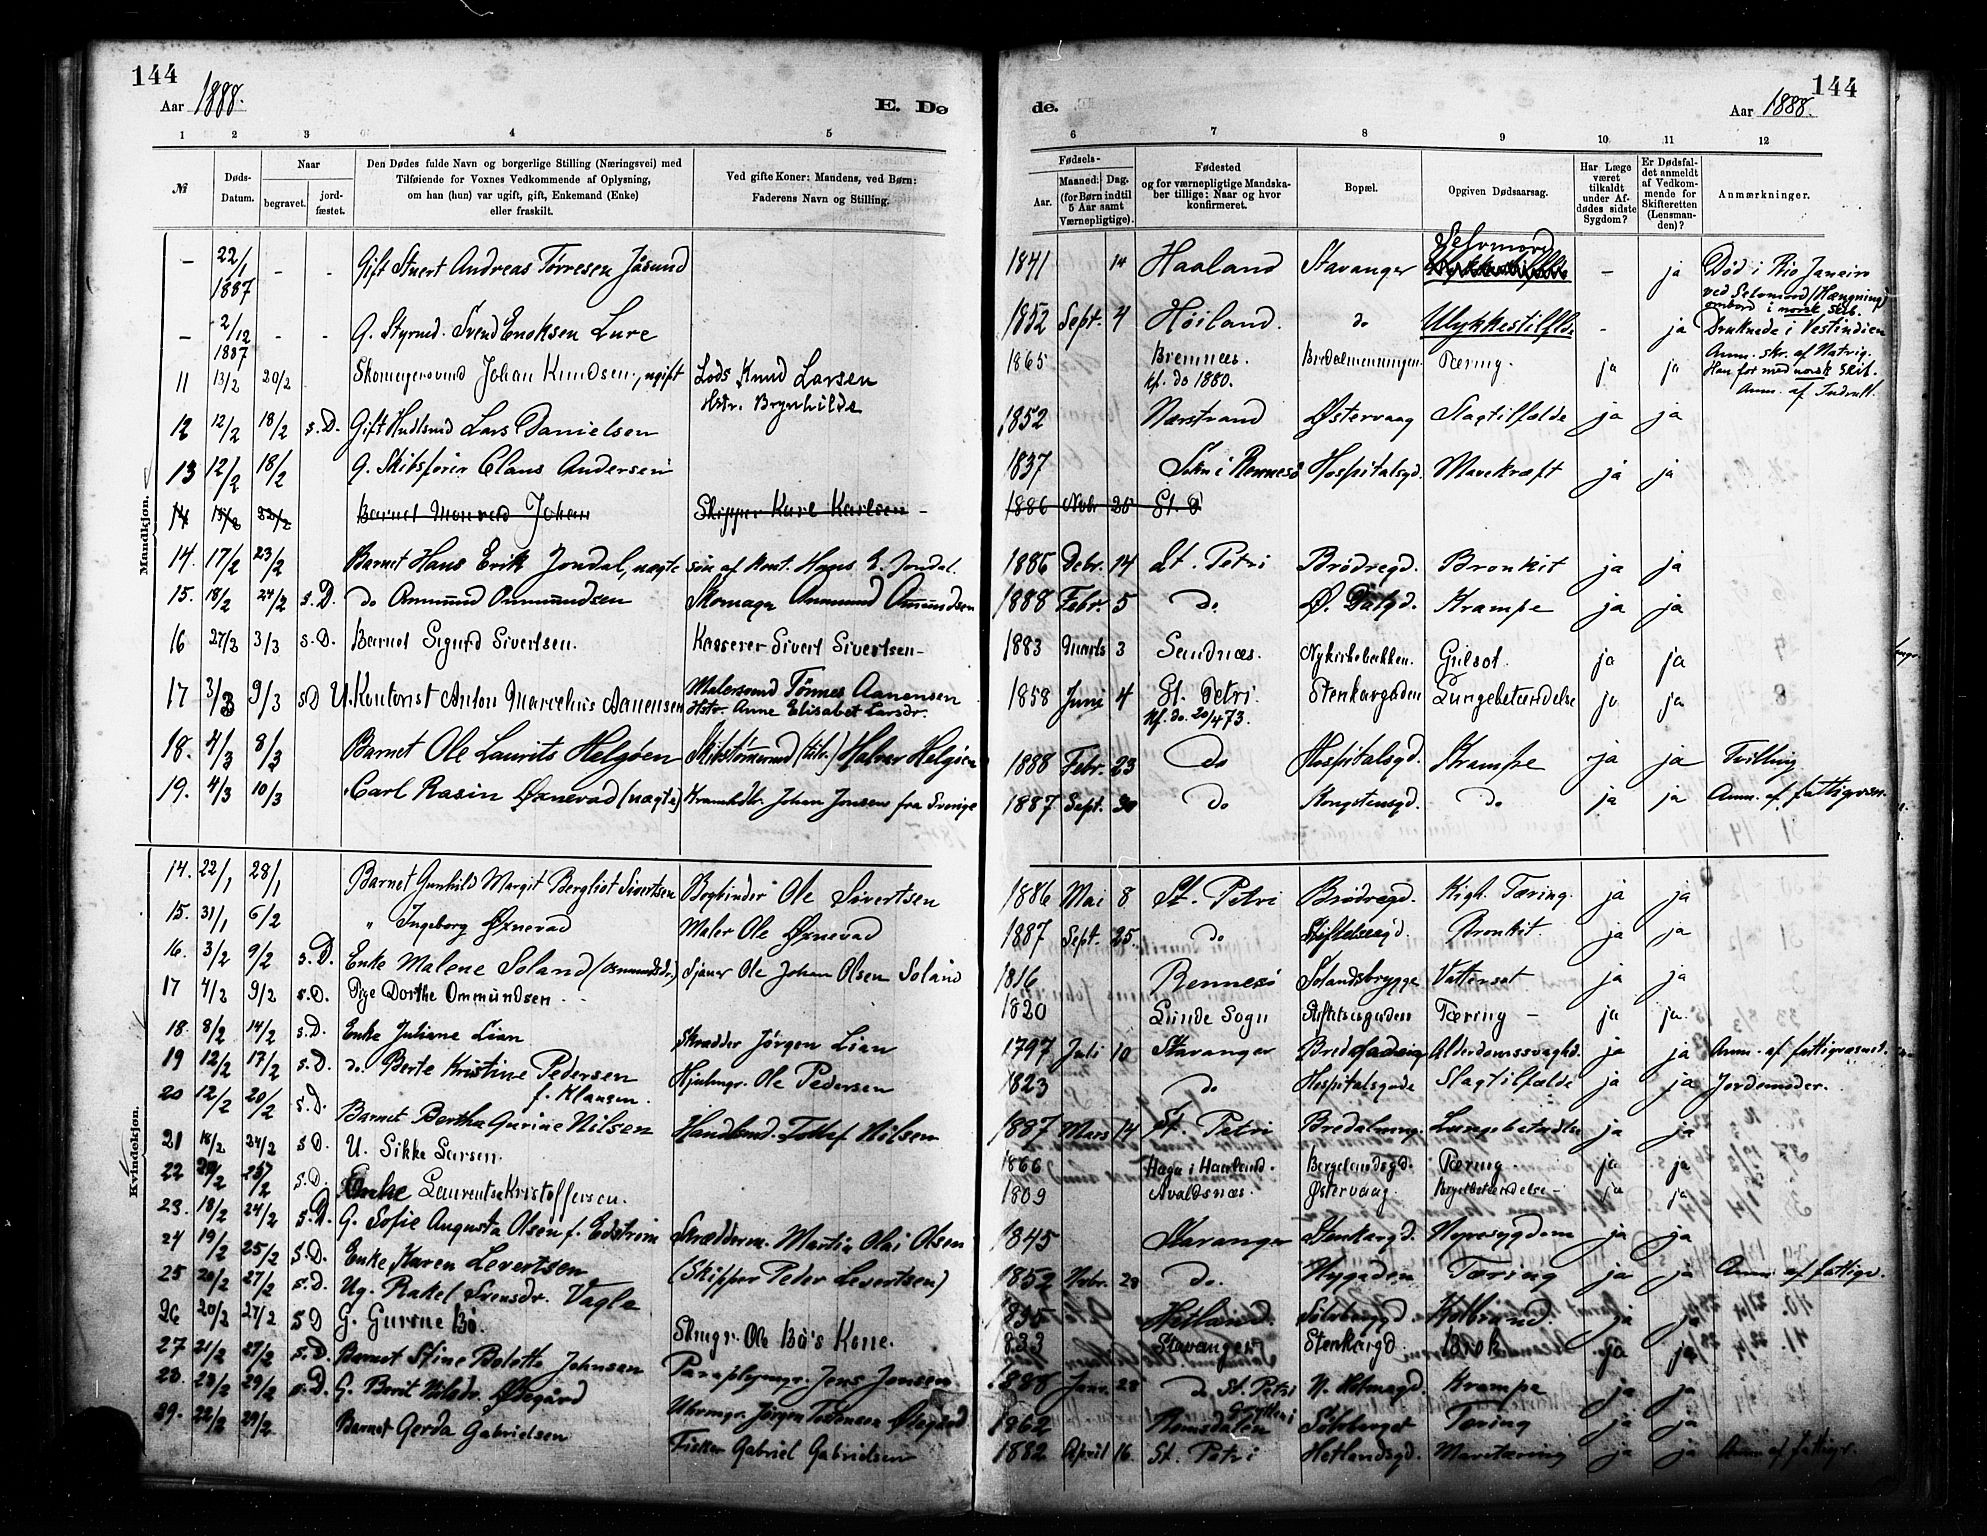 144
Aar 1888.
E. Dø
1 2 3 4 5
№
Døds-Datum.
Naar
begravet.
jord-fæstet.
Den Dødes fulde Navn og borgerlige Stilling (Næringsvei) med
Tilføiende for Voxnes Vedkommende af Oplysning,
om han (hun) var ugift, gift, Enkemand (Enke)
eller fraskilt.
Ved gifte Koner: Mandens, ved Børn:
Faderens Navn og Stilling.
Mandkjøn.
– 22/1 1887 – – Gift Stuert Andreas Tørresen Jåsund
– 2/12 1887 – – G. Styrmd. Svend Enoksen Lure
11 13/2 20/2 Skomagersvend Johan Knudsen, ugift Lods Knud Larsen
Hstr. Brynhilds
12 12/2 18/2 s.D. Gift Lars Danielsen
13 12/2 18/2 G. Skibsfører Claus Andersen
14 Barnet Johan Skipper Karl Karlsen –
14. 17/2 23/2 Barnet Hans Erik Jondal, uægte søn af Kont. Hans E. Jondal.
15. 18/2 24/2 s.D. do Ommund Ommundsen Skomager Ommund Omundsen
16 27/2 3/3 s.D. Barnet Sigurd Sivertsen. Kasserer Sivert Sivertsen –
17 3/3 9/3 s.D U. Kontorist Anton Marcelius Aanensen Malersvend Tönnes Aanensen
Hstr. Anne Elisabet Larsdr.
18. 4/3 8/3 Barnet Ole Laurits Helgøen Skibstømrmd Halvor Helgøen
19. 4/3 10/3 Carl Rasin Øxnevad (uægte) Kramhdlr. Johan Jonsens fra Sverige
Kvindekjøn.
14. 22/1 28/1 Barnet Gunhild Margit Bergliot Sivertsen Bogbinder Ole Sivertsen
15. 31/1 6/2 " Ingeborg Øxnevad Maler Ole Øxnevad
16. 3/2 9/2 s.D. Enke Malene Soland (Osmundsdr.) Sjauer Ole Johan Olsen Soland
17 4/2 9/2 s.D. Pige Dorthe Ommundsen
18. 8/2 14/2 s.D. Enke Juliane Lian Skrædder Jörgen Lian
19 12/2 17/2 s.D. do Berte Kristine Pedersen Hjulmgr. Ole Pedersen
f. Klausen.
20 12/2 20/2 s.D. Barnet Bertha Gurine Nilsen Handlsmd. Tollef Nilsen
21 18/2 24/2 s.D. U. Sikke Larsen.
22 s.D. Enke Laurentse Kristoffersen.
23. 18/2 24/2 s.D. G. Sofie Augusta Olsen f. Edström Skrædderm. Martin Olai Olsen
24 19/2 25/2 s.D. Enke Karen Levertsen (Skipper Peder Levertsen)
25 20/2 27/2 s.D. Ug. Rakel Svensdr. Vagle
26 20/2 27/2 s.D G. Gurine Bö. Skmgr. Ole Bö's Kone.
27 21/2 27/2 s.D. Barnet Stine Bolette Johnsen Paraplymgr. Jens Jonsen
28. 23/2 29/2 s.D. G. Berit Nilsdr. Ølegård Uhrmgr. Jörgen Ølegård
29. 22/2 29/2 Barnet Gerda Gabrielsen Fisker Gabriel Gabrielsen
144
de.
Aar 1888.
6 7 8 9 10 11 12
Fødsels-
Aar.
Maaned: Dag.
(for Børn indtil
5 Aar samt
Værnepligtige).
Fødested
og for værnepligtige Mandska-
ber tillige: Naar og hvor
konfirmeret.
Bopæl.
Opgiven Dødsaarsag.
Har Læge
været
tilkaldt
under Af-
dødes sidste
Sygdom?
Er Dødsfal-
det anmeldt
af Vedkom-
mende for
Skifteretten
(Lensman-
den)?
Anmærkninger.
1841 14 Haaland Stavanger Selvmord – ja Død i Rio Janeiro
ved Selvmord (Hængning)
ombord i norsk Skib.
1852 Sept. 4 Höiland. do Ulykkestilfælde – ja Druknede i Vestindien
Anm. skr. af Natvig.
1865 Bremnes. Bredalmenningen Tæring. ja ja Han for med norsk Skib.
kf. do 1880. Anm. af
1852 Nærstrand Østervaag Slagtilfælde ja ja
1837 Sokn i Rennesö Hospitalsgd. Mavekræft ja ja
1886 Nobr 20 St. P
1886 Debr. 14 St. Petri Brödregd. Bronkit ja ja
1888 Febr. 5 do Ø. Dalgd. Krampe ja ja
1883 Marts 3 Sandnæs. Nykirkebakken. Gulsot. ja ja
1858 Juni 4 St. Petri Stenkargaden Lungebetændelse ja ja
Kf. do. 20/4 73.
1888 Febr. 23 do Hospitalsgd. Krampe ja ja Tvilling
1887 Sept. 30 do Kongstensgd. do ja ja Anm. af fattigvæs.
1886 Mai 8 St. Petri Brödregd. Kigh. Tæring. ja ja
1887 Sept. 25 do Stiftelsesgd. Bronkit ja ja
1816 Rennesö Solandsbrygge Vattersot. ja ja
1820 Lunde Sogn Stiftelsesgaden Tæring – ja ja
1797 Juli 10 Stavanger Alderdomssvaghd. ja ja Anm. af fattigvæsnet.
1823 do Hospitalsgade Slagtilfælde ja ja Jordemoder.
1887 Mars 14 St. Petri Bredalmng. Lungebetndlse ja ja
1866 Haga i Haaland. Bergelandsgd. Tæring. ja ja
1809 Avaldsnæs. Østervaag. Brystbetændelse – ja ja
1845 Stavanger Stenkargd. Nyresygdom ja ja
1852 Nvbr. 28 do. Nygaden Tæring ja ja Anm. af fattigv.
1835 Hetland. Sölvbergd. Koldbrand. ja ja
1833 Stavanger Stenkargd. Brok ja ja
1888 Janr. 28 do St. Petri N. Holmegd. Krampe ja ja
1862 Romsdalen Sölvberget Tæring ja ja
1882 April 16. St. Petri Hetlandsgd. Mavetæring ja ja Anm. af fattigv.